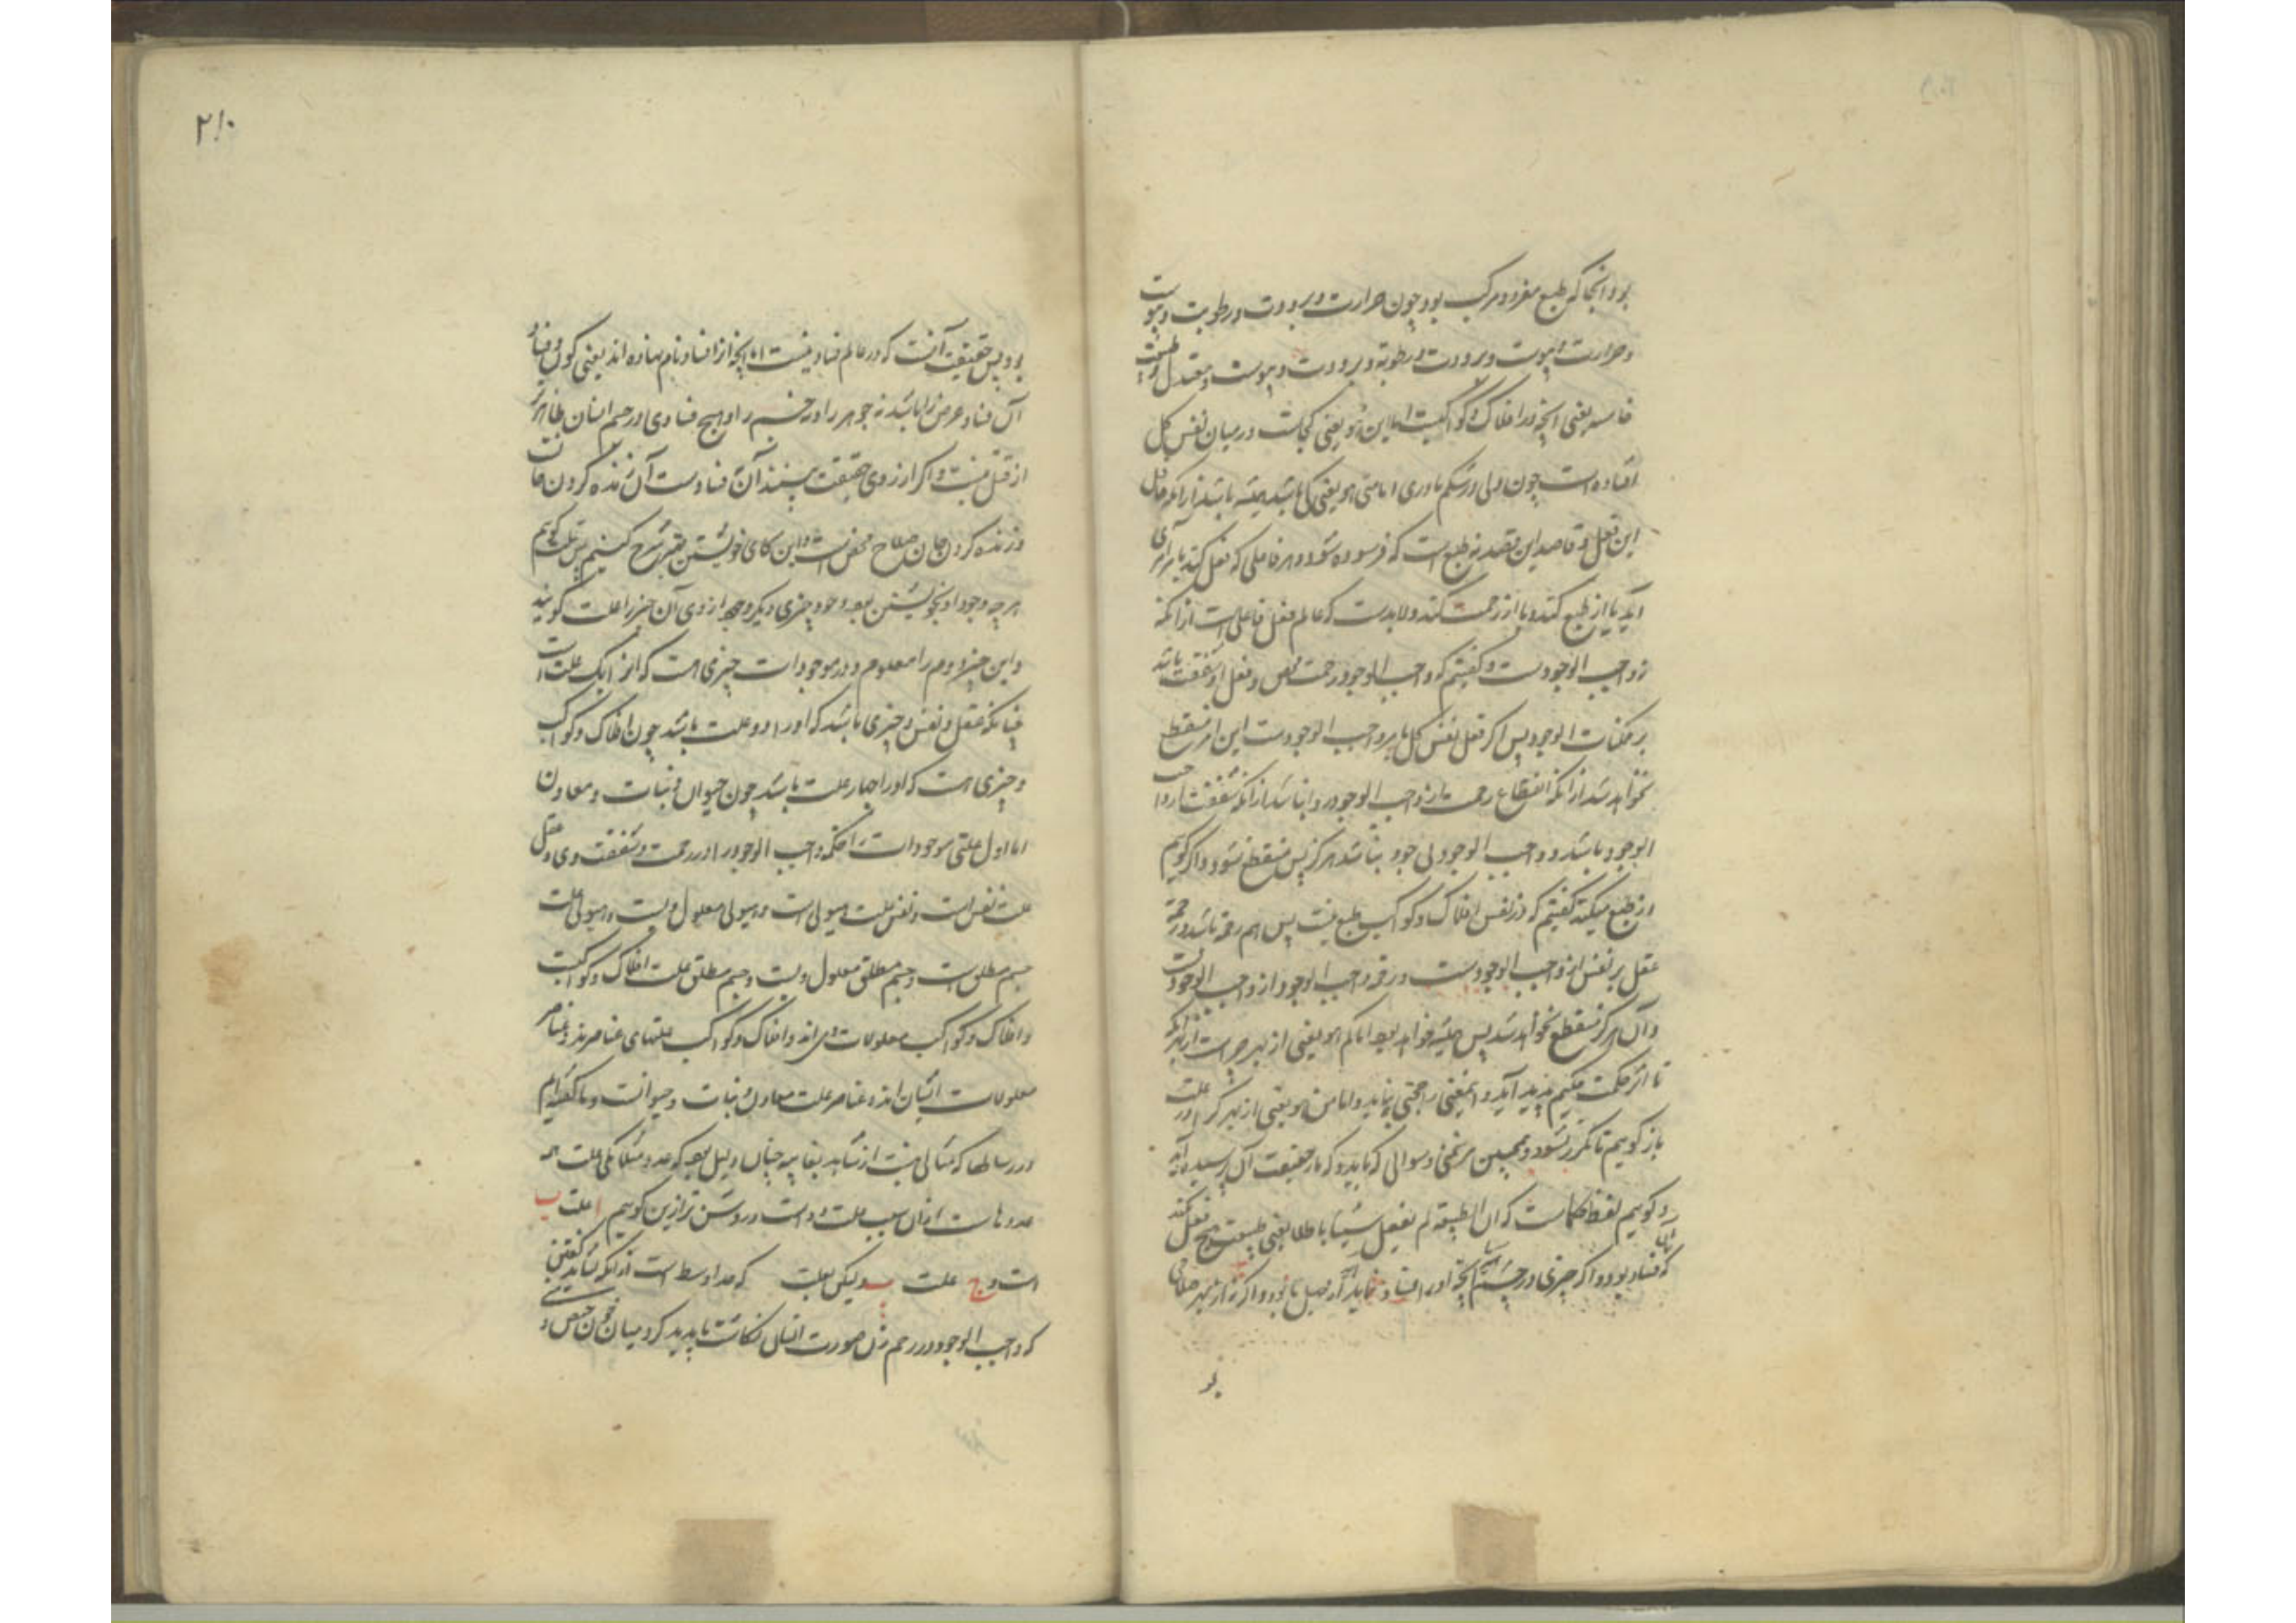 بود و آنجا که طبع مفرد و مرکب بود چون حرارت و برودت و رطوبت و یبوست
و حرارت و یبوست و برودت و رطوبة و برودت و یبوست و معتدل و طبیعت
خامسه یعنی آنچه در افلاک و کواکبست اما این هو یعنی کجاست در میان نفس کل
افتاده است چون ولی در شکم مادری اما متی هو یعنی کی باشد همیشه باشد زیرا که فاعل
این فعل و قاصد این قصد نه طبع است که فرسوده شود و هر فاعلی که فعل کند یا برای
آید یا از طبع کند و یا از رحمت کند و لابدست که عالم فعل فاعلی است از آنکه
واجب الوجودست و گفتیم که واجب الوجود رحمت محض و فعل او شفقت باشد
بر ممکنات الوجود پس اگر فعل نفس کل بامر واجب الوجودست این امر منقطع
نخواهد شد از آنکه انقطاع رحمت از واجب الوجود روا نباشد از آنکه شفقت از واجب
الوجود باشد و واجب الوجود بی جود نباشد هرگز پس منقطع نشود و اگر گوییم
از طبع میکند گفتیم که در نفس افلاک و کواکب طبع نیست پس هم رحمة باشد و رحمة
عقل بر نفس از واجب الوجودست و رحمة واجب الوجود از واجب الوجودست
و آن هرگز منقطع نخواهد شد پس همیشه خواهد بود اما لم هو یعنی از بهر چراست از بهر آنکه
تا اثر حکمت حکیم پدید آید و این معنی را حجتی نباید و اما من هو یعنی از بهر که علت
باز گوییم تا مکرر نشود و همچنین هر سخنی و سوالی که باید و که باز حقیقت آن رسیده آید
و گوییم لفظ حکماست که ان الطبیعة لم یفعل شیئا باطلا یعنی طبیعت هیچ فعل نکند
که فساد بود و اگر چیزی در جسم آنچه او را فساد نماید
بو
۲۱۰
بود پس حقیقت آنست که در عالم فساد نیست اما آنچه از افساد نام نهاده اند یعنی کون و فساد
آن فساد عرض را باشد نه جوهر را و نه جسم را و هیچ فسادی در جسم انسان ظاهرتر
از قتل نیست و اگر از روی حقیقت ببینند آن نه فسادست آن زنده کردن جانست
و زنده کردن جان صلاح محض است و این کتابی خویشتن شرح کنیم پس گوییم
هر چه وجود او بخویشتن بود و وجود چیزی دیگر از وی آن چیز را علت گویند
و این چیز دوم را معلوم و در موجودات چیزی هست که او را یک علت است
چنانکه عقل و نفس و چیزی باشد که او را دو علت باشد چون افلاک و کواکب
و چیزی هست که او را چهار علت باشد چون حیوان و نبات و معادن
اما اول علتی موجودات را حکم واجب الوجود را و رحمت و شفقت وی و عقل
علت نفس است و نفس علت هیولی است و هیولی معلول ویست و هیولی علت
جسم مطلق است و جسم مطلق معلول ویست و جسم مطلق علت افلاک و کواکبست
و افلاک و کواکب معلولات وی اند و افلاک و کواکب علتهای عناصرند و عناصر
معلولات ایشان اند و عناصر علت معادن و نبات و حیوانست و ما گفته ایم
در رسالها که مثالی نیست از شاهد بغایب چنان دلیل بود که عدد مثلا یکی علت همه
عددهاست از آن سبب علت دو است و روشن تر ازین گوییم ا علت ب
است و ج علت ب و لیکن علت که حد اوسط است از آنکه شاید گفتن
که واجب الوجود در رحم زن صورت انسان نگاشت تا پدید کرد میان خون حیض و